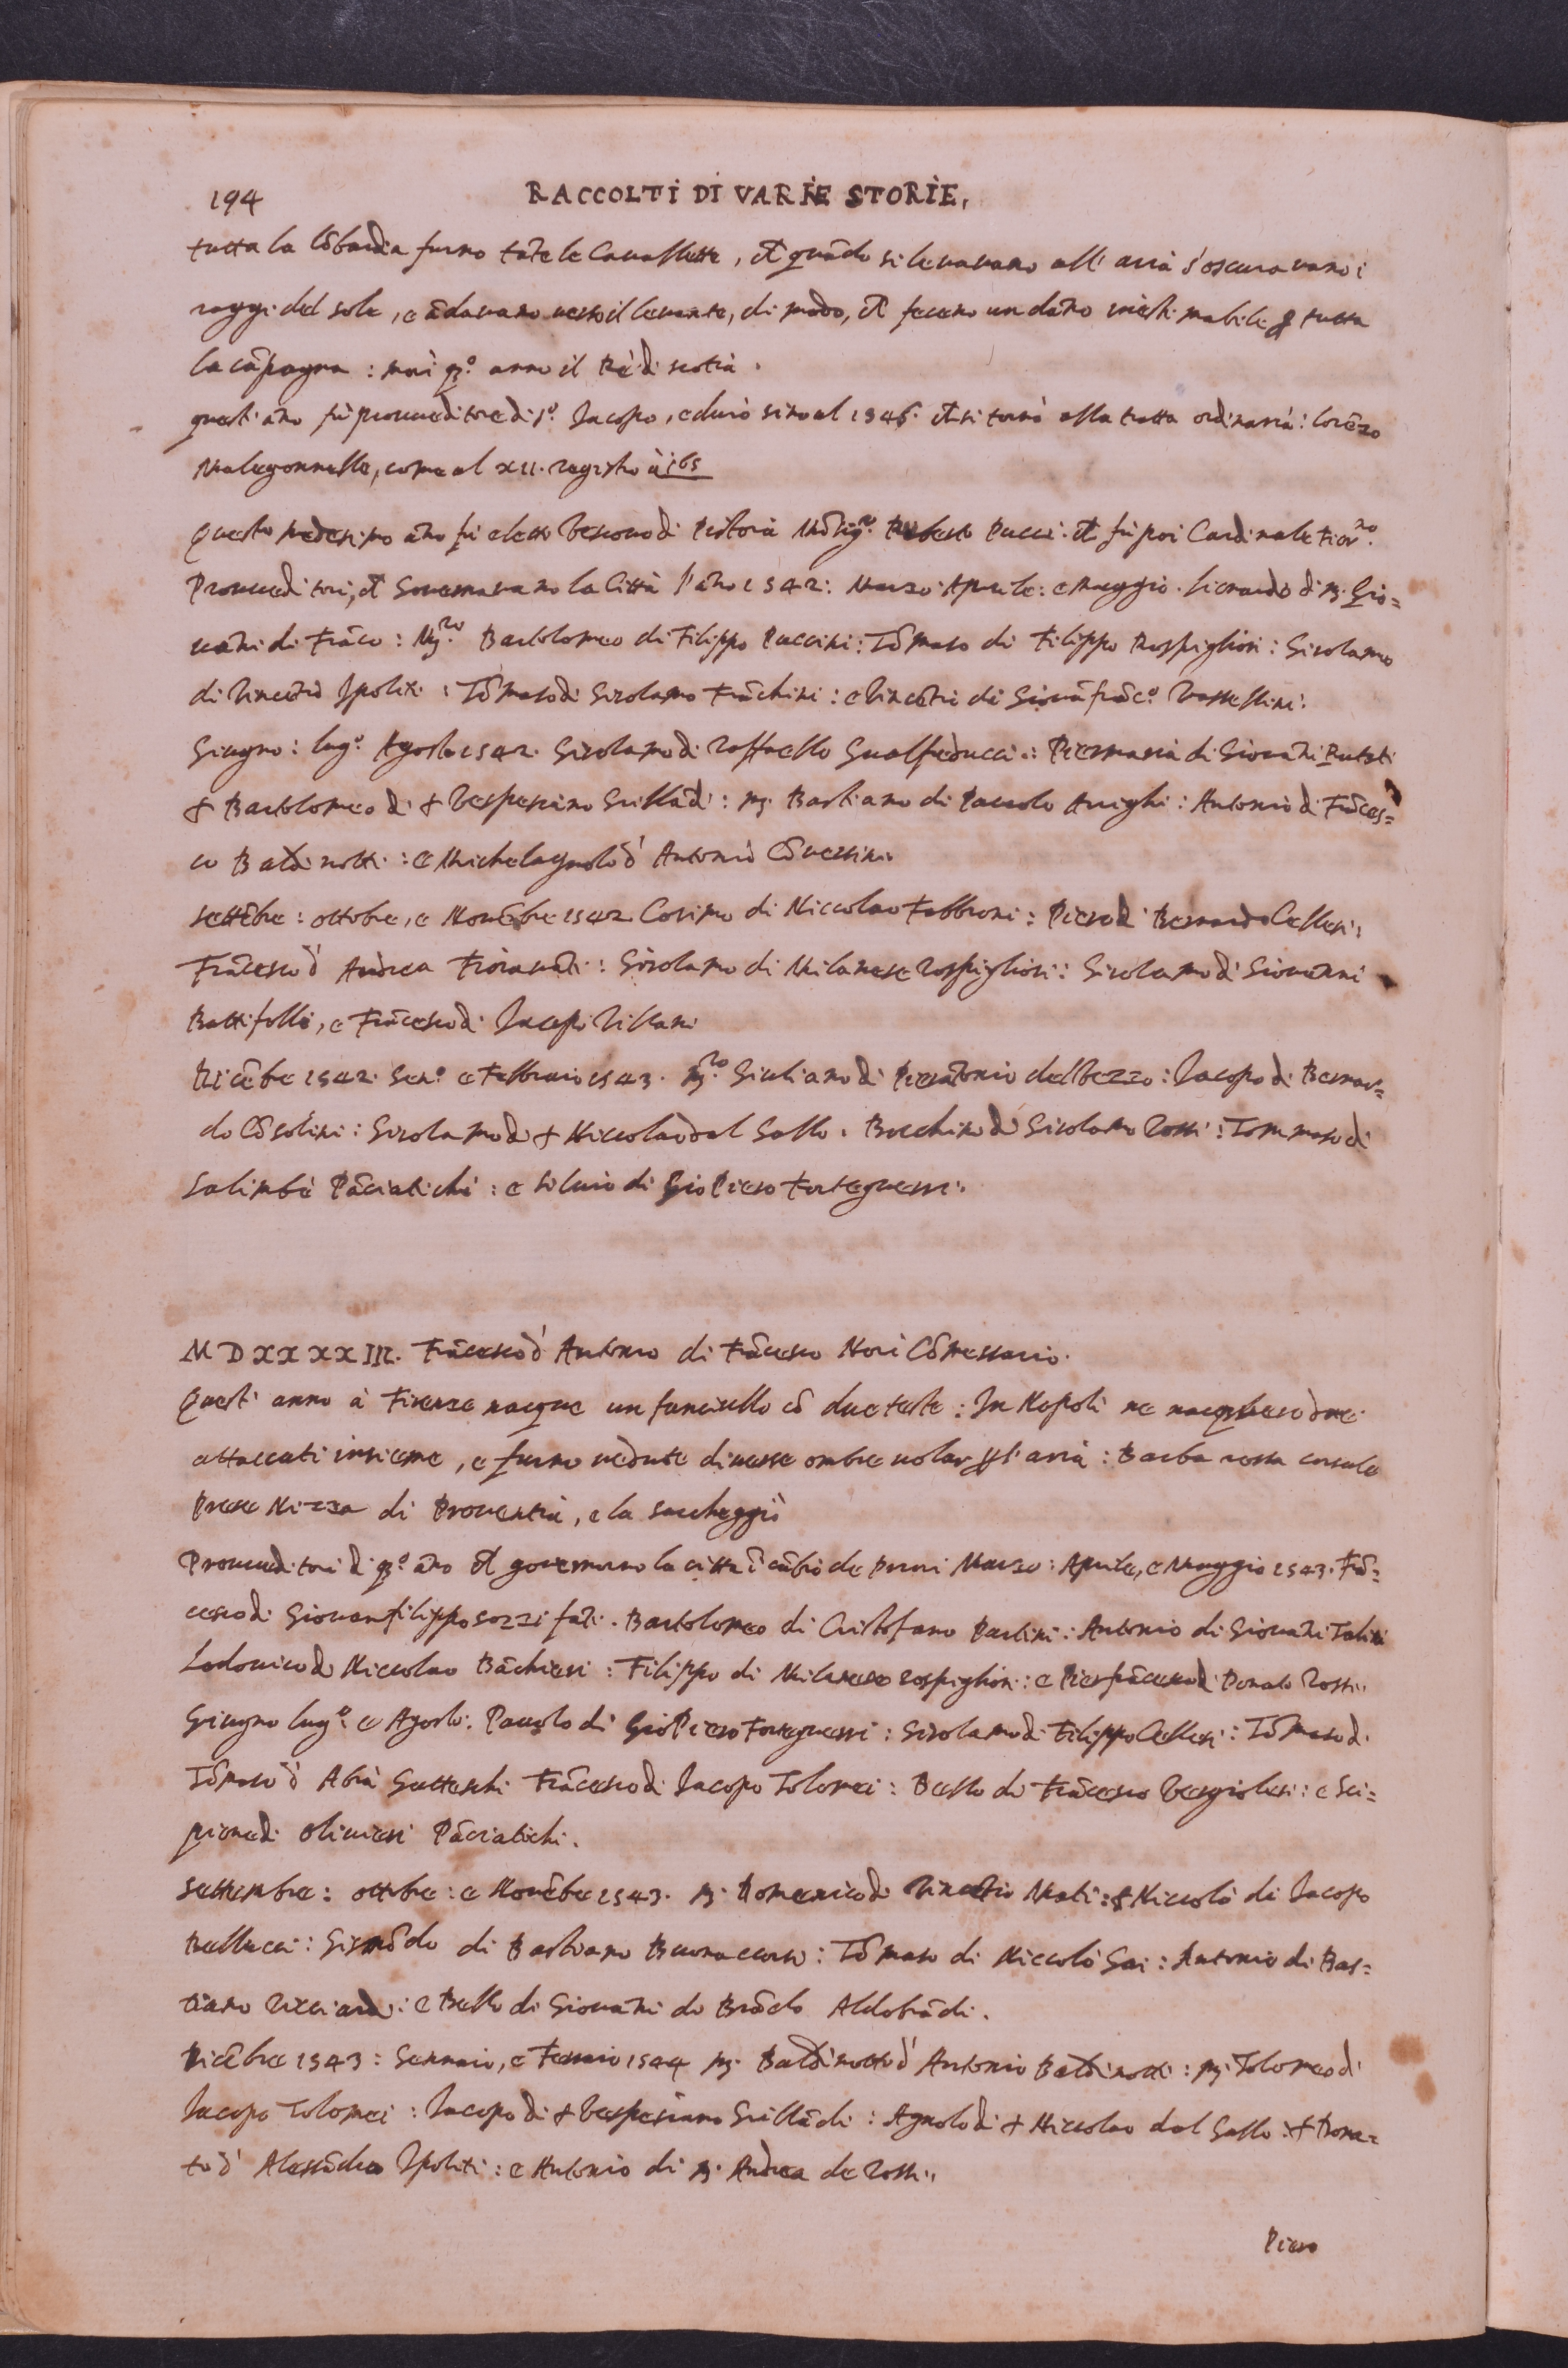 194 RACCOLTI DI VARIE STORIE,
tutta la lõbardia furno tãte le Cavallette, ch̃ quãdo si levavano all' aria s'oscuravano i
raggi del sole, e ãdavano verso il levante, di modo, ch̃ fecero un dãno inestimabile ꝑ tutta
la cãpagna : morì qº. anno il Rè di scotia.
quest' ãno fù proveditore di Sº. Jacopo, e durò sino al 1546. ch̃ si tornò alla tratta ordinaria: lorẽzo
Malegonnelle, come al XII. registro à 165
Questo medesimo ãno fù eletto Vescovo di Pistoia Mõsigre. Ruberto Pucci. ch̃ fù poi Cardinale Fiorno.
Proveditori, ch̃ Governavano la Città l'ãno 1542: Marzo: Aprile: e Maggio. lionardo di mʒ. Gio=
vãni di Frãco: Mʒro. Bartolomeo di Filippo Puccini: Tõmaso di Filippo Rospigliosi: Girolamo
di Vincẽtio Ipoliti: Tõmaso di Girolamo Frãchini: e Vincẽtio di Giovãfrãcº. Vastellini.
Giugno: lugº. Agosto 1542. Girolamo di Raffaello Gualfreducci: Piermaria di Giovãni Rutati
✝ Bartolomeo di ✝ Vespesiano Grillãdi: mʒ. Bastiano di Pauolo Arrighi: Antonio di Frãces=
co Baldinotti: e Michelagnolo d' Antonio Cõversini.
settẽbre: ottobre, e Novẽbre 1542 Cosimo di Niccolao Fabbroni: Piero di Bernardo Cellesi:
Frãcesco d' Andrea Fioravãti: Girolamo di Milanese Rospigliosi: Girolamo di Giovanni
Battifolli, e Frãcesco di Jacopo Villani
Dicẽbre 1542. Genº. e Febbraio 1543. Mʒro. Giuliano di Pierãtonio del Vezzo: Jacopo di Bernar=
do Cõsolini: Girolamo di ✝ Niccolao dal Gallo. Bocchino di Girolamo Rossi: Tommaso di
Salimbè Pãciatichi: e silvio di Gio Piero Forteguerri.
MDXXXXIII. Frãcesco d' Antonio di Frãcesco Nori Cõmessario.
Quest' anno à Firenze nacque un fanciullo cõ due teste: In Napoli ne nacquero due
attaccati insieme, e furno vedute diverse ombre volar ꝑ l'aria: Barba rossa corsale
Prese Nizza di Proventia, e la saccheggiò
Proveditori di qº. ãno ch̃ governorno la città ĩ cãbio de Priori Marzo: Aprile, e Maggio 1543. Frã=
cesco di Giovanfilippo sozzifãti. Bartolomeo di Cristofano Partini: Antonio di Giovãni Talini
Lodovico di Niccolao Bãchieri: Filippo di Milanese rospigliosi: e Pierfrãcesco di Donato Rossi.
Giugno lugº: e Agosto. Pauolo di Gio Piero Forteguerri: Girolamo di Filippo Cellesi: Tõmaso di
Tõmaso d' Abrà Gatteschi Frãcesco di Jacopo Tolomei: Bello di Frãcesco Vergiolesi: e Sci=
pione di olivieri Pãciatichi.
settembre: ottobre: e Novẽbre 1543. mʒ. Domenico di Vincẽtio Mati: ✝ Niccolò di Jacopo
Bellucci: Gismõdo di Bastiano Buonaccorsi: Tõmaso di Niccolò Gai: Antonio di Bas=
tiano Ricciardi: e Bello di Giovãni di Brãdo Aldobrãdi.
Dicẽbre 1543: Gennaio, e Ferraio 1544 mʒ. Baldinotto d' Antonio Baldinotti: mʒ. Tolomeo di
Jacopo Tolomei: Jacopo di ✝ Vespesiano Grillãdi: Agnolo di ✝ Niccolao dal Gallo: ✝ Dona=
to d' Alessãdro Ipoliti: e Antonio di mʒ. Andrea de Rossi.
Piero